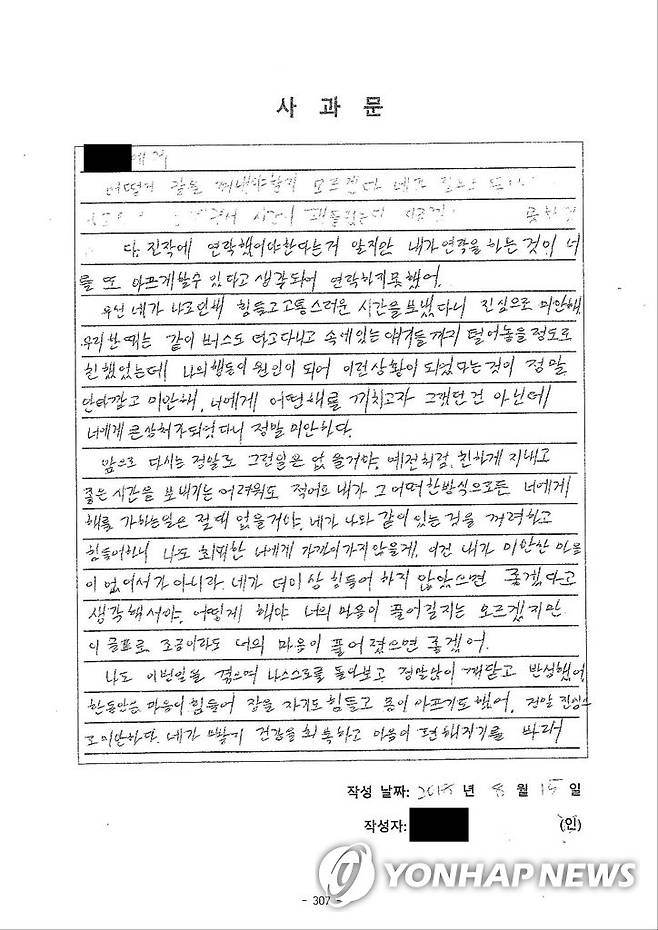 사 과 문
에게
다. 진작에 연락했어야한다는거 알지만 내가 연락을 하는 것이 너
를 또 아프게할수 있다고 생각되어 연락하지못했어.
우선 네가 나로인해 힘들고고통스러운 시간을 보냈다니 진심으로 미안해.
우리 한때는 같이 버스도 타고다니고 속에있는 얘기들까지 털어놓을 정도로
친했었는데 나의행동이 원인이 되어 이런상황이 되었다는것이 정말
안타깝고 미안해. 너에게 어떤해를 끼치고자 그랬던건 아닌데
너에게 큰상처가되었다니 정말 미안하다.
앞으로 다시는 정말로 그런일은 없을거야. 예전처럼, 친하게 지내고
좋은 시간을 보내기는 어려워도 적어도 내가 그 어떠한방식으로든 너에게
해를 가하는일은 절대 없을거야. 네가 나와 같이 있는 것을 꺼려하고
힘들어하니 나도 최대한 너에게 가까이가지않을게. 이건 내가 미안한 마음
이 없어서가 아니라. 네가 더이상 힘들어 하지 않았으면 좋겠다고
생각해서야. 어떻게 해야 너의 마음이 풀어질지는 모르겠지만
이 글로 조금이라도 너의 마음이 풀어졌으면 좋겠어.
나도 이번일을 겪으며 나스스로를 돌아보고 정말많이 깨닫고 반성했어.
한동안은 마음이 힘들어 잠을 자기도 힘들고 몸이 아프기도했어. 정말 진심으
로미안하다. 네가 빨리 건강을 회복하고 마음이 편해지기를 바라
작성 날짜: 2018 년 8 월 15 일
작성자: (인)
YONHAP NEWS
- 307 -